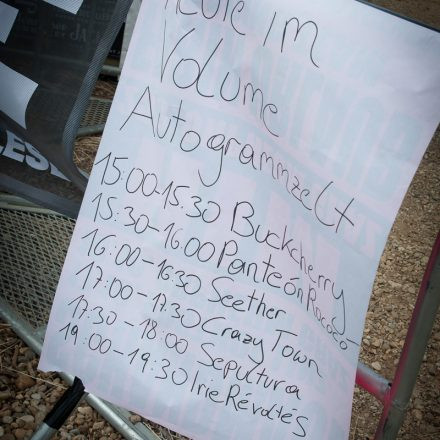 Heute im
Volume
Autogrammzelt
15:00-15:30 Buckcherry
15:30-16:00 Panteón Rococó
16:00-16:30 Seether
17:00-17:30 Crazy Town
17:30-18:00 Sepultura
19:00-19:30 Irie Révoltés